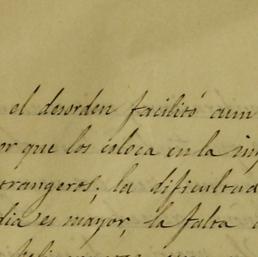 el desorden facilitó aun
que los coloca en la
trangeros, la dificultad
es mayor, la falta